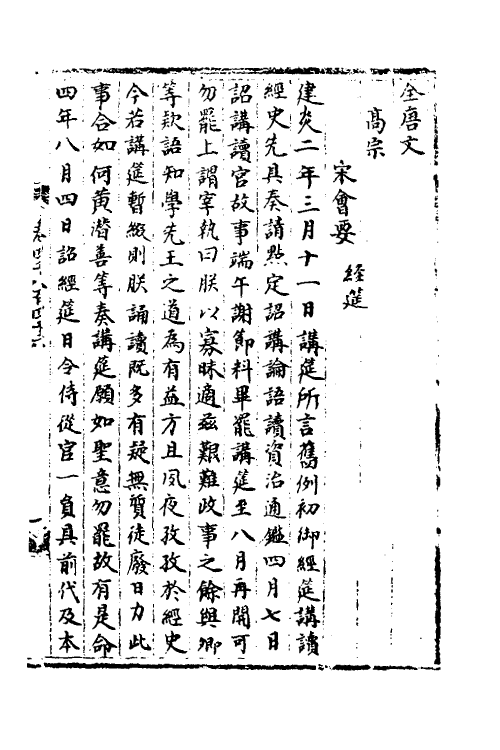 全唐文
高宗
宋會要 經筵
建炎二年三月十一日講筵所言舊例初御經筵講讀
經史先具奏請點定詔講論語讀資治通鑑四月七日
詔講讀官故事端午謝節料畢罷講筵至八月再開可
勿罷上謂宰執曰朕以寡昧適茲艱難政事之餘與卿
等欵語知學先王之道為有益方且夙夜孜孜於經史
今若講筵暫綴則朕誦讀既多有疑無質徒廢日力此
事合如何黃潛善等奏講筵願如聖意勿罷故有是命
四年八月四日詔經筵日令侍從官一員具前代及本